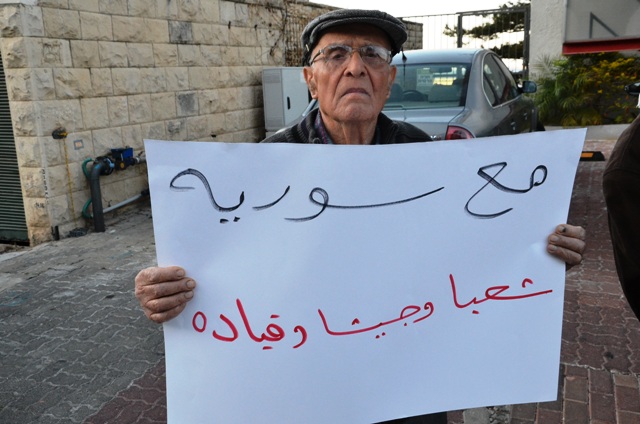 مع سوريه
شعبا وجيشا وقياده
N